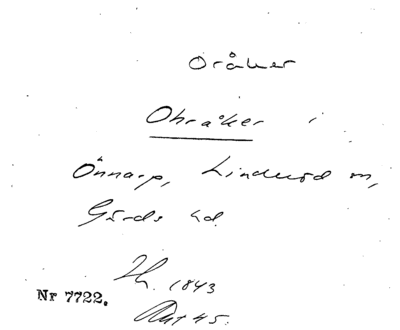 Oråker
Ohråker i
Önnarp, Linderöd sn,
Gärds hd.
1843
Nr 7722.